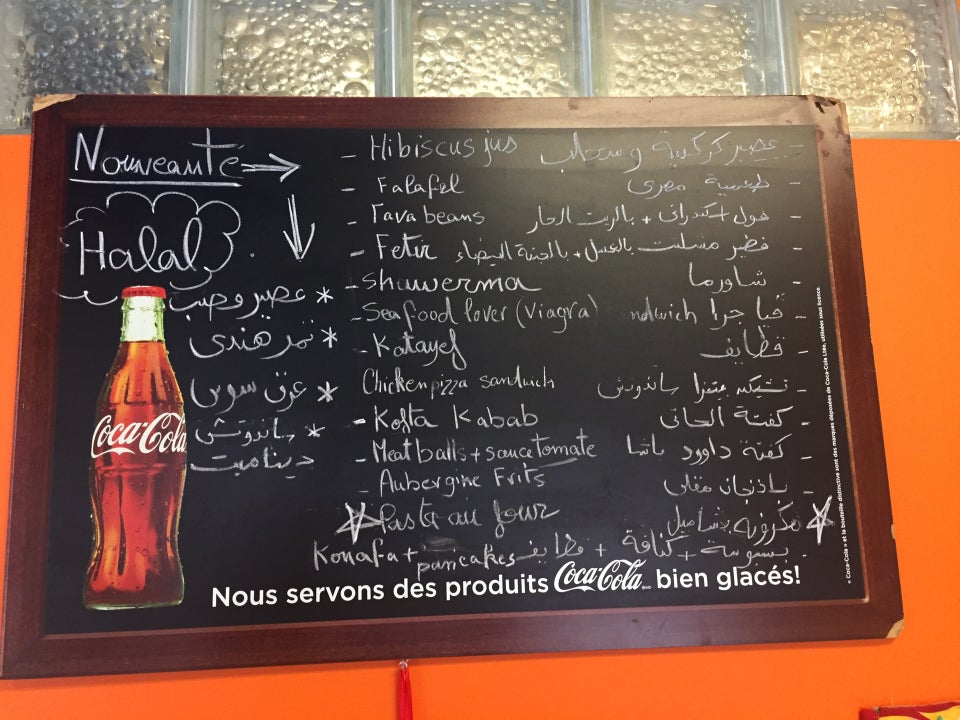 Nouveauté
Halal
عصير قصب *
تمر هندى *
عرق سوس *
ساندوتش *
ديناميت
Coca-Cola
- Hibiscus jus عصير كركديه و سحلب -
- Falafel طعمية مصرى -
- Fava beans فول اسكندرانى + بالزيت الحار -
- Fetir فطير مشلتت بالعسل + بالجبنة البيضاء -
- Shawerma شاورما -
- Seafood lover (Viagra) ndwich -
- Katayef قطايف -
Chicken pizza sandwich تشيكن بيتزا ساندوتش -
- Kofta Kabab كفتة الحاتى -
- Meatballs + sauce tomate كفتة داوود باشا -
- Aubergine Frits باذنجان مقلى -
Pasta au four مكرونه بشاميل
Konafa + pancakes بسبوسة + كنافة + قطايف -
Nous servons des produits Coca-Cola bien glacés!
« Coca-Cola » et la bouteille distinctive sont des marques déposées de Coca-Cola Ltée, utilisées sous licence.